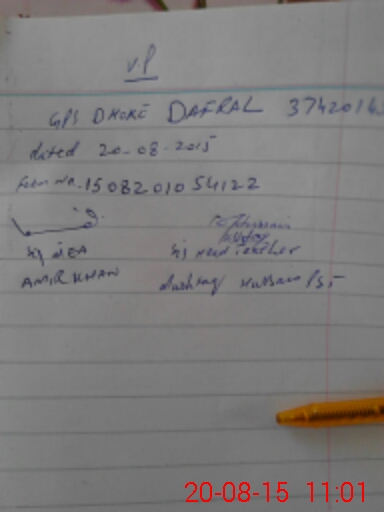 V.P
GPS DHOKE DAFRAL 3742016
dated 20-08-2015
Form No. 15082010 54122
S/J MEA S/J Head Teacher
AMIR KHAN Mushtaq Hussain PST
20-08-15 11:01